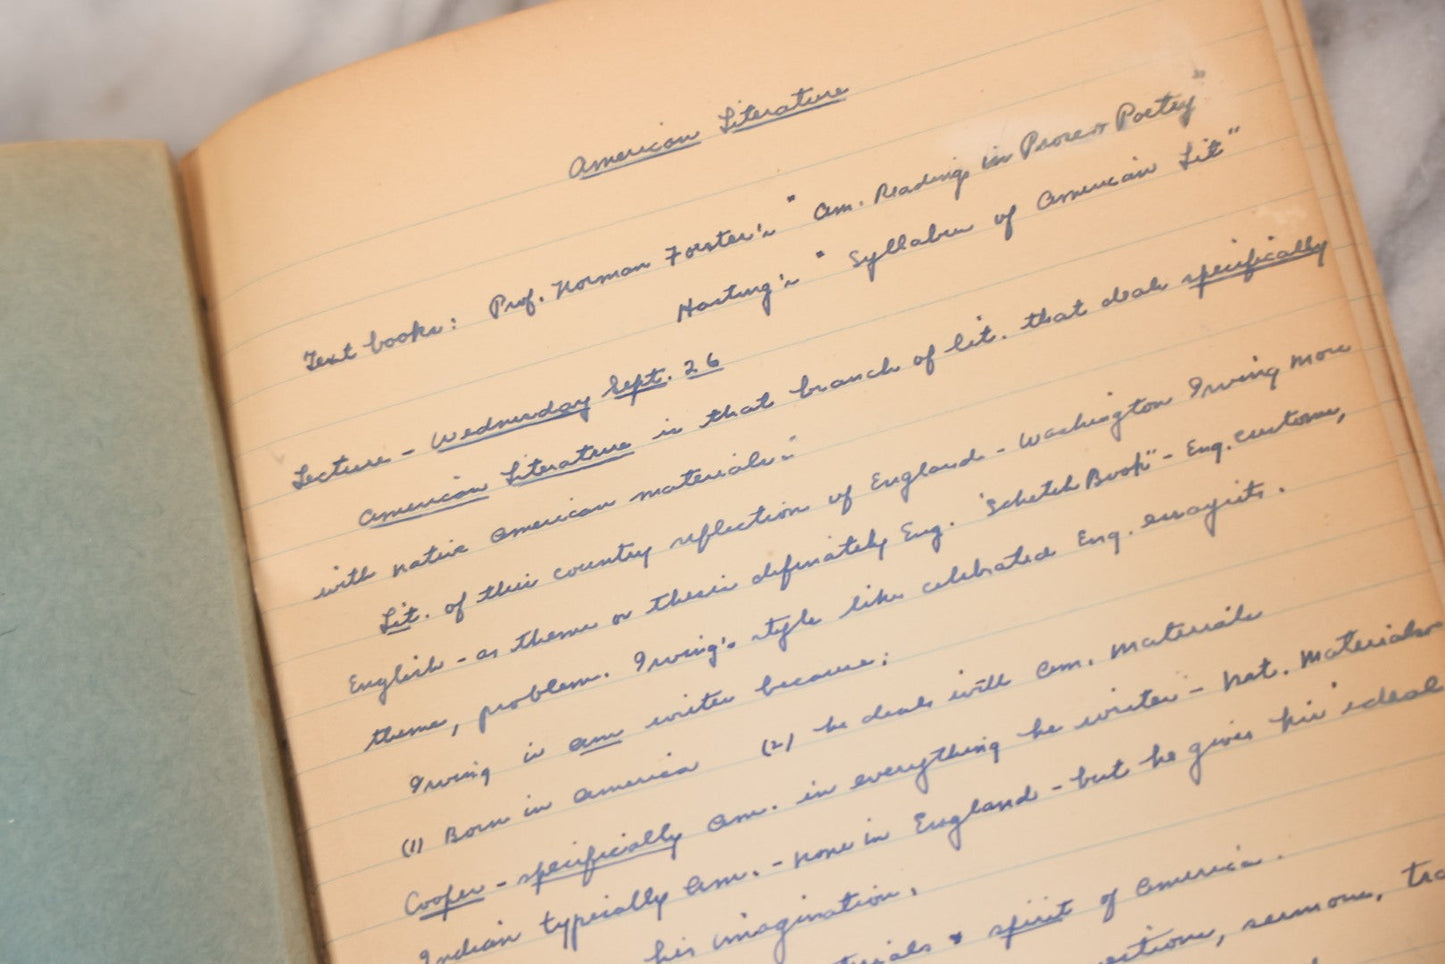 American Literature
Text books: Prof. Norman Forster's "Am. Readings in Prose or Poetry"
Hasting's "Syllabus of American Lit"
Lecture - Wednesday Sept. 26
American Literature is that branch of lit. that deals specifically
with native American materials.
Lit. of this country reflection of England - Washington Irving more
English - as theme or thesis definately Eng. "Schetch Book" - Eng. customs,
theme, problem. Irving's style like celebrated Eng. essayists.
Irving is am writer because:
(1) Born in America (2) he deals with Am. materials
Cooper - specifically Am. in everything he writes - Nat. Materials
Indian typically Am. - none in England - but he gives his ideal
his imagination.
& spirit of America.
sermons,